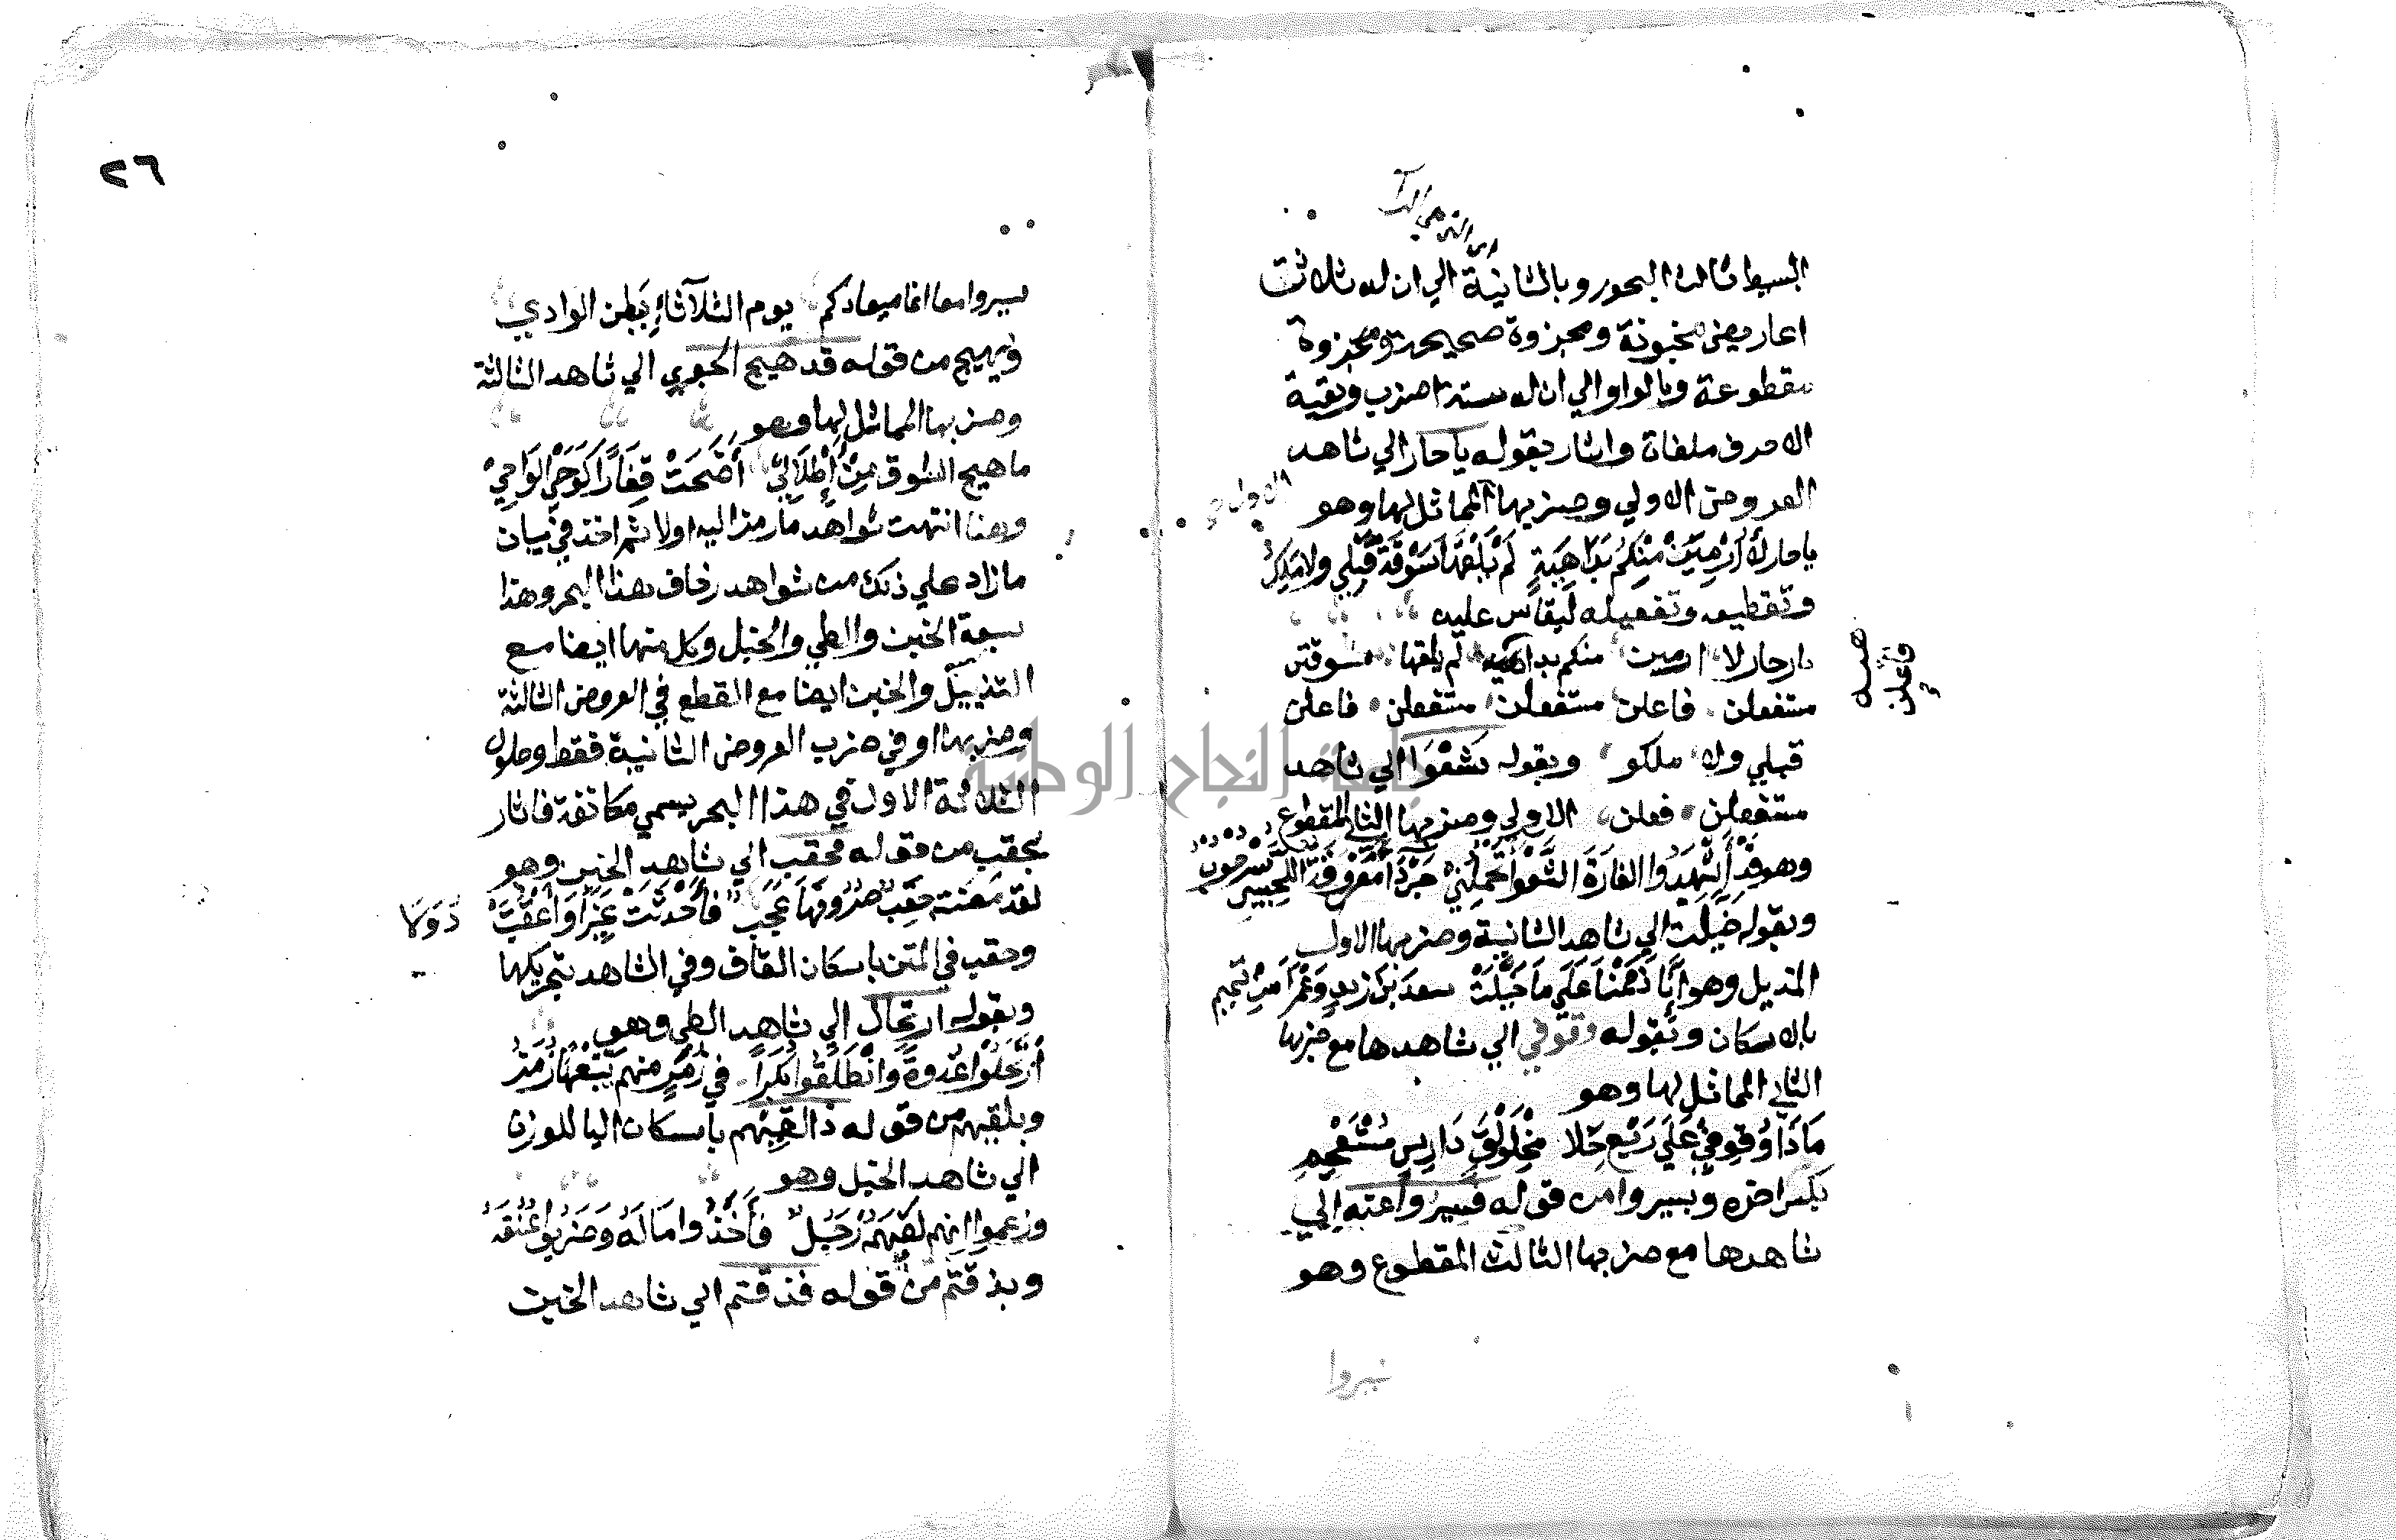 البسيط ثالث البحور وبالثانية الي ان له ثلاث
اعاريض مخبونة ومجزوة صحيحة ومجزوة
مقطوعة وبالواو الي ان له ستة اضرب وبقية
الاحرف ملغاة واشار بقوله يا حار الي شاهد
العروض الاولي وضربها المماثل لها وهو
يا حار لا أُرْمَيَنْ مِنْكُمْ بِدَاهِيَةٍ لَمْ يَلْقَهَا سُوْقَةٌ قَبْلِي ولا مَلِكُ
وتقطيعه وتفعيله ليقاس عليه
يا حار لا ارمين منكم بداهية لم يلقها سوقتن
مستفعلن فاعلن مستفعلن مستفعلن فاعلن
قبلي ولا ملكو وبقوله شعوا الي شاهد
مستفعلن فعلن الاولي وضربها الثاني المقطوع
وهو قَدْ أَشْهَدُ الغارَةَ الشَّعْوا تَحْمِلُنِيْ جَرْدَا مَعْرُوقَةُ اللَّحْيَيْنِ سُرْحُوْبُ
وبقوله خيلت الي شاهد الثانية وضربها الاول
المذيل وهو إِنَّا ذَمَمْنَا عَلَي مَا خَيَّلَتْ سعدَ بْنَ زيدٍ وَعَمْرًا مِنْ تَمِيم
بالاسكان وبقوله وقوفي الي شاهدها مع ضربها
الثاني المماثل لها وهو
مَاذَا وُقوفِيْ عَلَي رَبْعٍ خَلا مُخْلَوْلَقٍ دَارِسٍ مُسْتَعْجِمِ
بكسر اخره وبسيروا من قوله فسيروا معه إلي
شاهدها مع ضربها الثالث المقطوع وهو
سيروا
فاعلن
٢٦
سيروا معا انما ميعادكم يوم الثلآثاءِ بَطن الوادي
وبهيج من قوله قد هيج الجوي الي شاهد الثالثة
وضربها المماثل لها وهو
ما هيج الشوق مِنْ أَطْلَالٍ أَضْحَتْ قِفَارًا كَوَحْيِ الوَاحِيْ
وهنا انتهت شواهد ما رمز اليه اولا ثم اخذ في بيان
ما زاد علي ذلك من شواهد زحاف هذا البحر وهذا
سبعة الخبن والطي والخبل وكل منها ايضا مع
التذييل والخبن ايضا مع القطع في العروض الثالثة
وضربها او في ضرب العروض الثانية فقط وحلول
الثلاثة الاول في هذا البحر يسمي مكانفة فاشار
بحقب من قوله محقب الي شاهد الخبن وهو
لقد مضت حِقَبٌ صُرُوفُهَا عَجَبٌ فَأَحْدَثَتْ عِبَرًا وَأَعْقَبَتْ دُوَلَا
وحقب في المتن باسكان القاف وفي الشاهد بتحريكها
وبقوله ارتحال الي شاهد الطي وهو
أرْتَحَلُوْا غُدْوَةً وَانْطَلَقُوا بُكَرًا في زُمَرٍ منهم يَتْبَعُهَا زُمَرُ
وبلقيهم من قوله ذا لَقِيَهُم باسكان اليا للوزن
الي شاهد الخبل وهو
وزعموا انهم لَقِيَهُمْ رَجُلٌ فَأَخَذُوا مَالَهُ وَضَرَبُوا عُنُقَهُ
وبذقتم من قوله فذقتم الي شاهد الخبن
جامعة النجاح الوطنية